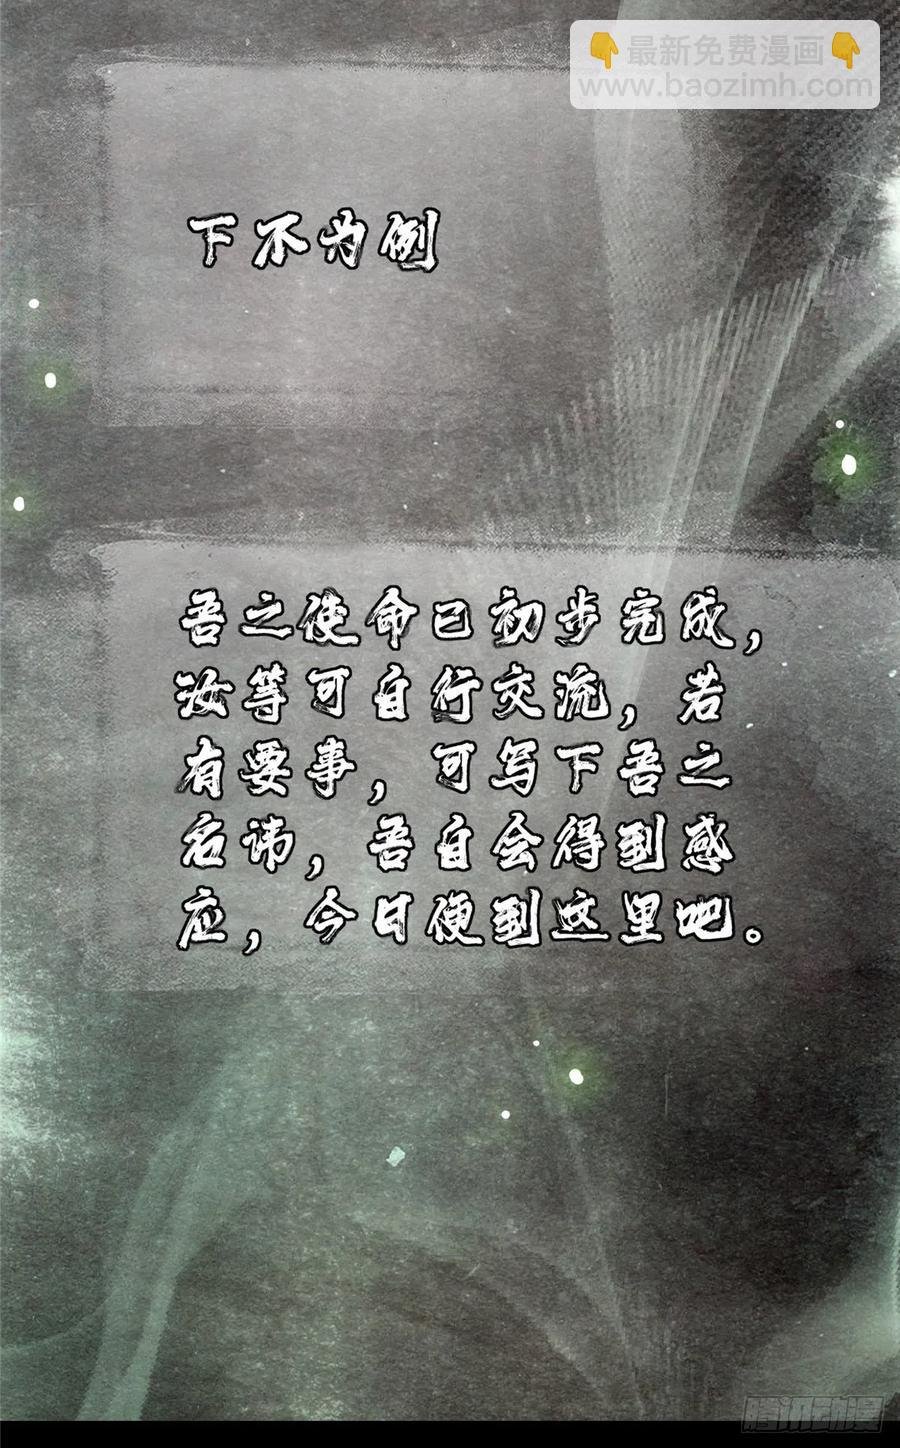 👇最新免费漫画👇
www.baozimh.com
下不为例
吾之使命已初步完成，
汝等可自行交流，若
有要事，可写下吾之
名讳，吾自会得到感
应，今日便到这里吧。
腾讯动漫